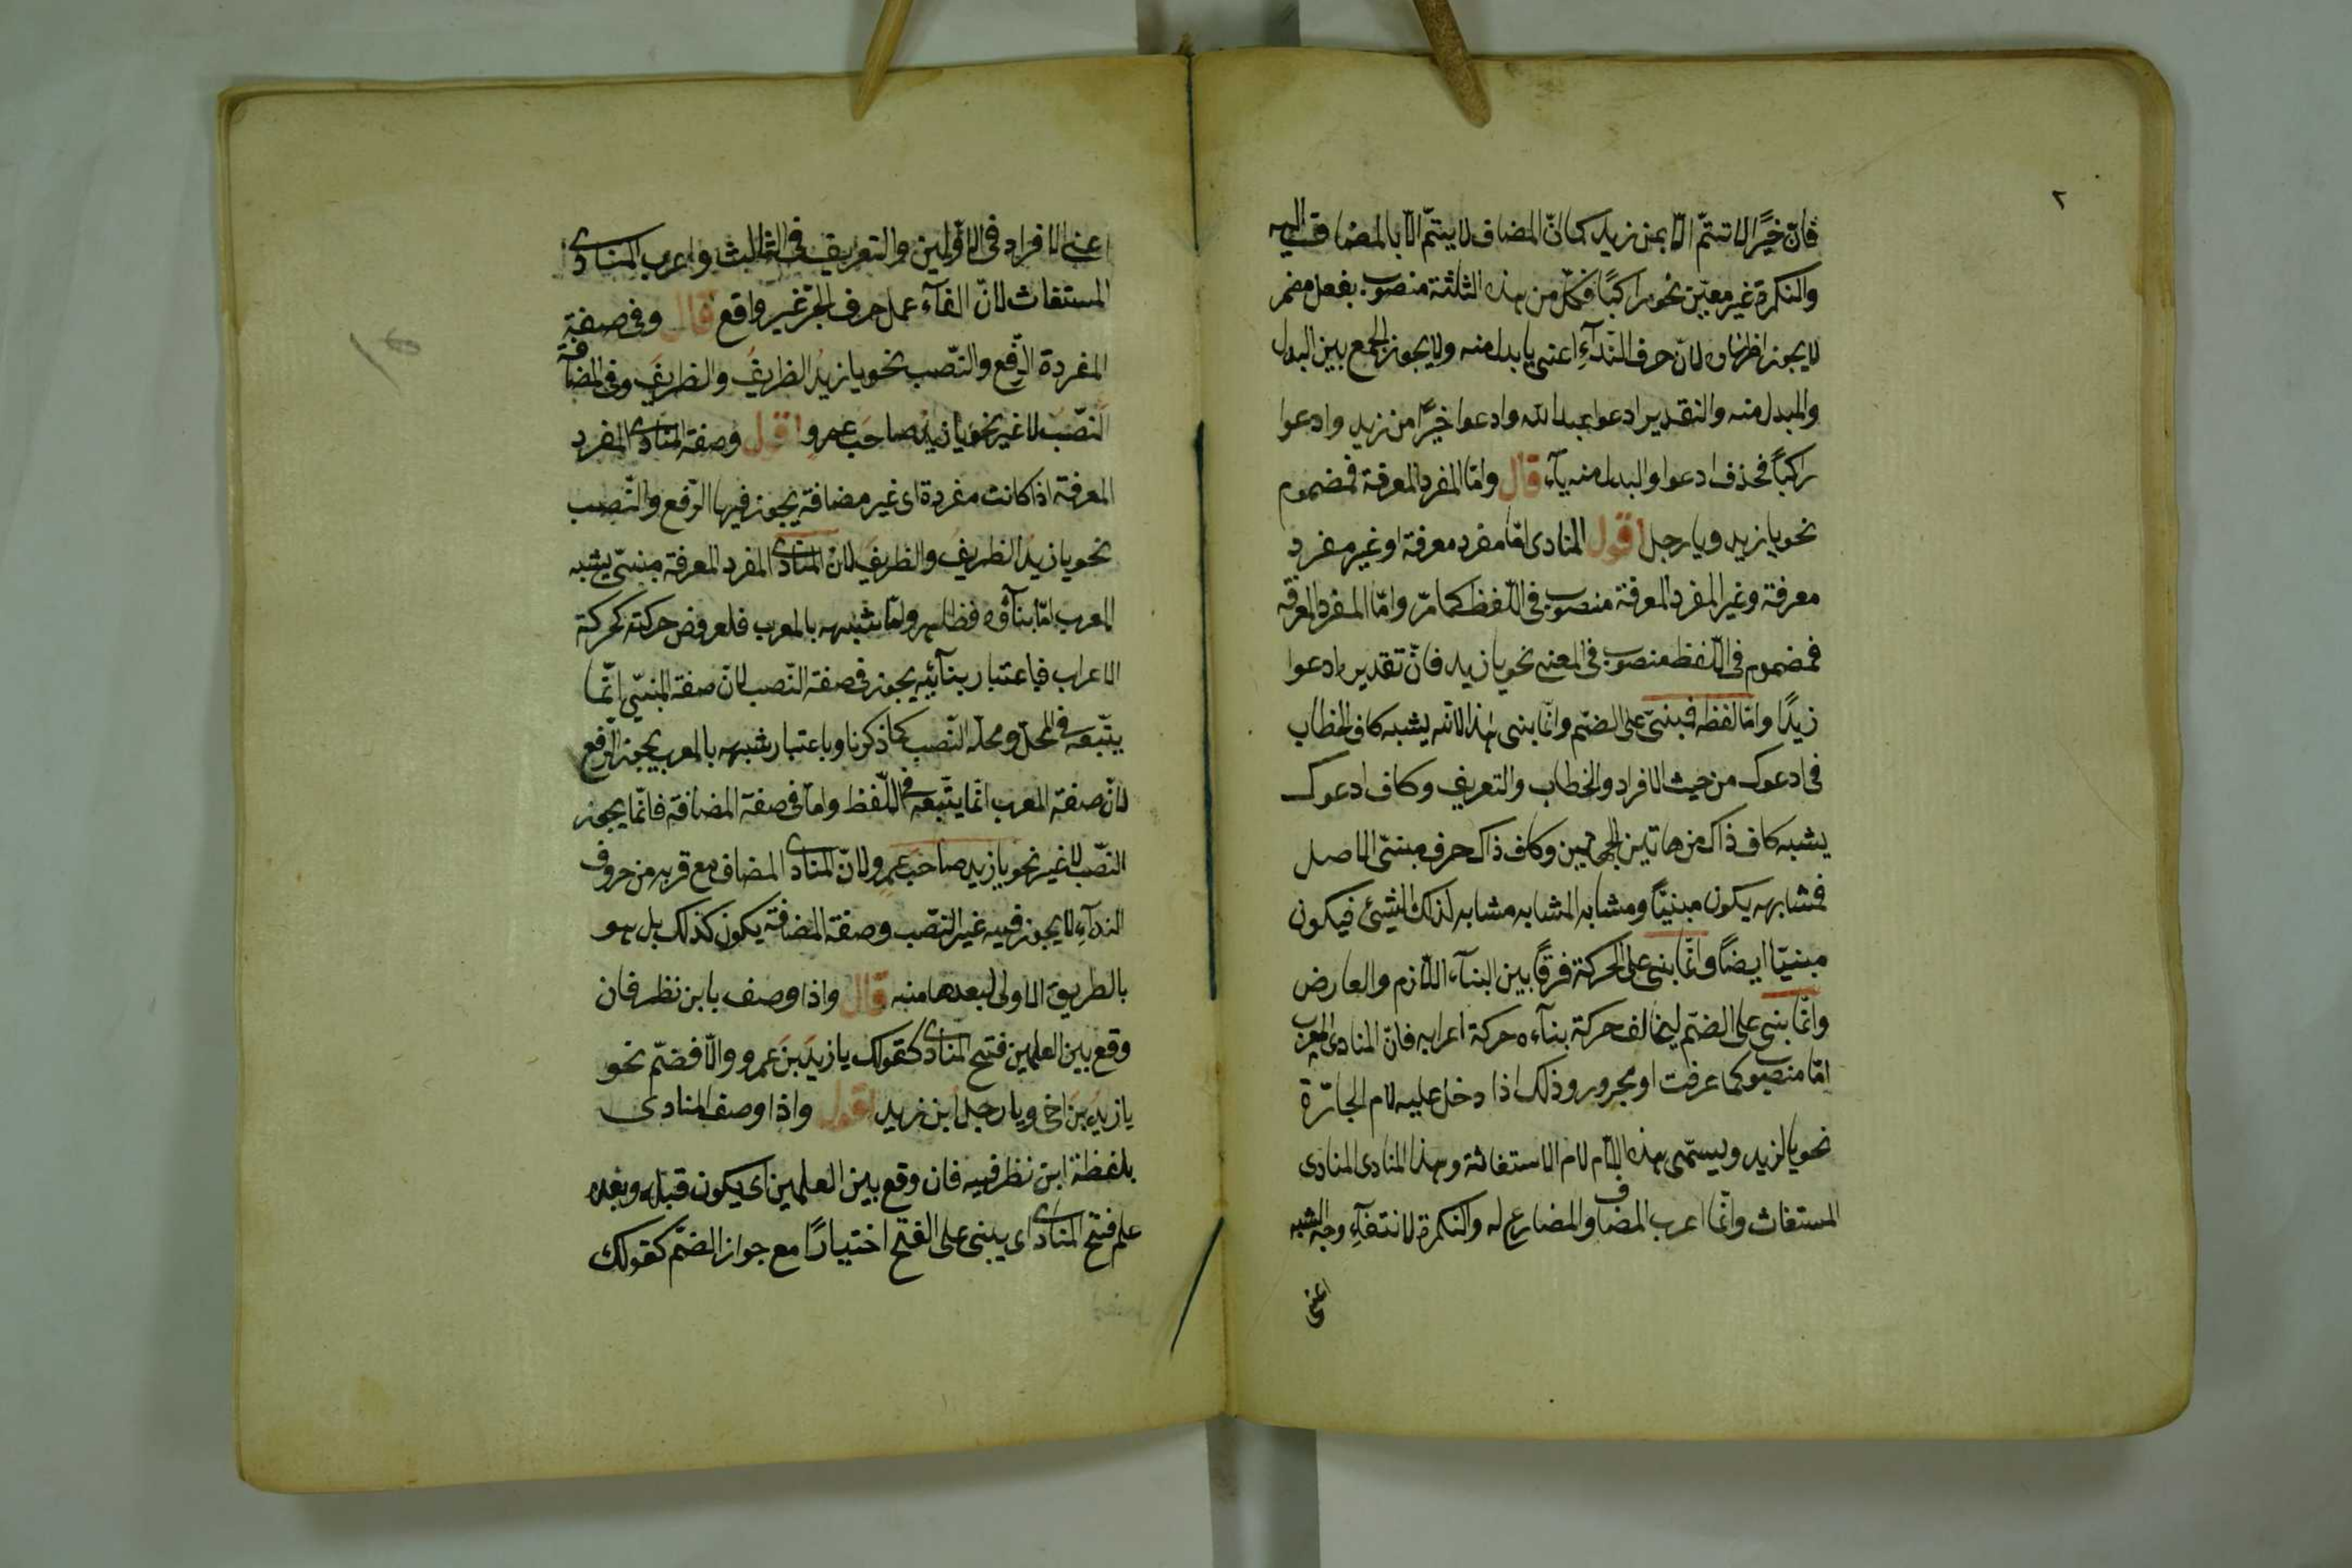 ٢
فانّ خيرًا لا تتمّ الّا بمن زيد كما انّ المضاف لا يتمّ الّا بالمضاف اليه
والنكرة غير معيّن نحو يا راكبًا فكلّ من هذه الثلثة منصوب بفعل مضمر
لا يجوز اظهاره لانّ حرف النّدآءِ اعنى يا بدل منه ولا يجوز الجمع بين البدل
والمبدل منه والتقدير ادعوا عبد الله وادعوا خيرًا من زيد وادعوا
راكبًا فحذف ادعوا والبدل منه يآء قال وامّا المفرد المعرفة فمضموم
نحو يا زيد ويا رجل اقول المنادى امّا مفرد معرفة او غير مفرد
معرفة وغير المفرد المعرفة منصوب فى اللّفظ كما مرّ وامّا المفرد المعرفة
فمضموم فى اللّفظ منصوب فى المعنى نحو يا زيد فانّ تقديره ادعوا
زيدًا وامّا لفظه فمبنىّ على الضمّ وانّما بنى هذا لانّه يشبه كاف الخطاب
فى ادعوك من حيث الافراد والخطاب والتعريف وكاف ادعوك
يشبه كاف ذاك من هاتين الجهتين وكاف ذاك حرف مبنىّ الاصل
فمشابهه يكون مبنيّاً ومشابه المشابه مشابه لذلك الشيئ فيكون
مبنيّا ايضًا وانّما بنى على الحركة فرقًا بين البنآء اللّازم والعارض
وانّما بنى على الضمّ ليخالف حركة بنآءه حركة اعرابه فانّ المنادى المعرب
امّا منصوب كما عرفت او مجرور وذلك اذا دخل عليه لام الجارّة
نحو يا لزيد ويسمّى هذه اللّام لام الاستغاثة وهذا المنادى المنادى
المستغاث وانّما اعرب المضاف والمضارع له والنكرة لانتفآء وجه الشبه
اعنى
اعنى الافراد فى الاوّلين والتعريف فى الثالث واعرب المنادى
المستغاث لانّ الغآء عمل حرف الجرّ غير واقع قال وفى صفته
المفردة الرّفع والنّصب نحو يا زيدُ الظريفُ والظريفَ وفى المضافة
النّصب لا غير نحو يا زيدُ صاحبَ عمرو اقول وصفة المنادى المفرد
المعرفة اذا كانت مفردة اى غير مضافة يجوز فيها الرّفع والنّصب
نحو يا زيدُ الظريفُ والظريفَ لانّ المنادى المفرد المعرفة مبنىّ يشبه
المعرب امّا بنآؤه فظاهر وامّا شبهه بالمعرب فلعروض حركته كحركة
الاعراب فباعتبار بنآئِه يجوز فى صفته النّصب لانّ صفة المبنىّ انّما
يتّبعه فى المحلّ ومحلّه النّصب كما ذكرنا وباعتبار شبهه بالمعرب يجوز الرّفع
لانّ صفة المعرب انّما يتّبعه فى اللّفظ وامّا فى صفة المضافة فانّما يجوز
النّصب لا غير نحو يا زيد صاحبَ عمرو لانّ المنادى المضاف مع قربه من حروف
الندآءِ لا يجوز فيه غير النّصب وصفة المضافة يكون كذلك بل هو
بالطريق الاولى لبعدها منه قال واذا وصف بابن نظر فان
وقع بين العلمين فتح المنادى كقولك يا زيدَ بنَ عمرو والّا فضمّ نحو
يا زيدُ بنَ اخى ويا رجل ابن زيد اقول واذا وصف المنادى
بلفظة ابن نظر فيه فان وقع بين العلمين اى يكون قبله وبعده
علم فتح المنادى اى يبنى على الفتح اختيارًا مع جواز الضمّ كقولك